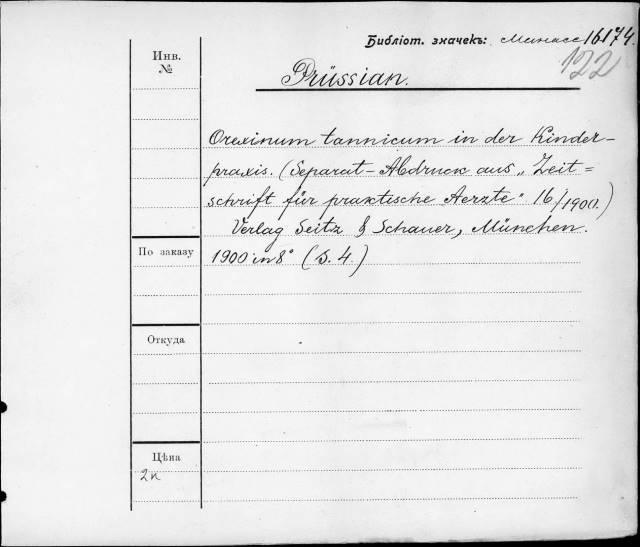 Библіот. значекъ: Минасс 16174.
122
Инв.
№
Prüssian.
Orexinum tannicum in der Kinder-
praxis. (Separat-Abdruck aus „Zeit=
schrift für praktische Aerzte" 16/1900.)
Verlag Seitz & Schauer, München.
По заказу
1900 in 8° (S. 4.)
Откуда
Цѣна
2к